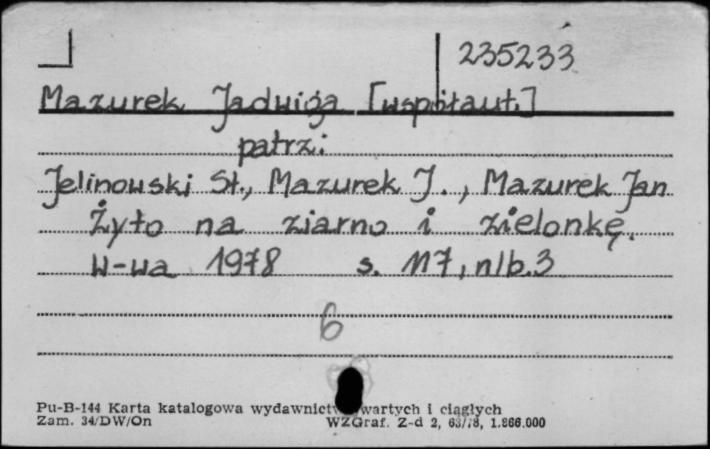 235233
Mazurek Jadwiga [współaut.]
patrz:
Jelinowski St., Mazurek J., Mazurek Jan
Żyto na ziarno i zielonkę.
W-wa 1978 s. 117, nlb. 3
6
Pu-B-144 Karta katalogowa wydawnictw zwartych i ciągłych
Zam. 34/DW/On WZGraf. Z-d 2, 63/78, 1.866.000